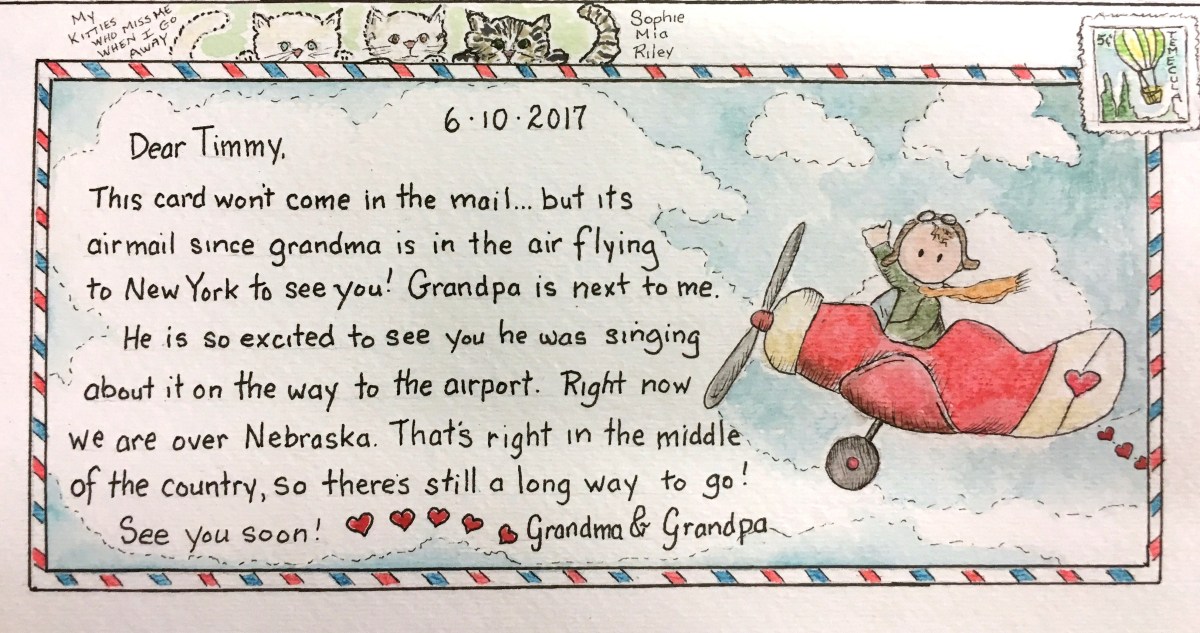 My
Kitties
who miss me
when I go
away
Sophie
Mia
Riley
5¢
TEMECULA
6·10·2017
Dear Timmy,
This card won't come in the mail... but its
airmail since grandma is in the air flying
to New York to see you! Grandpa is next to me.
He is so excited to see you he was singing
about it on the way to the airport. Right now
we are over Nebraska. That's right in the middle
of the country, so there's still a long way to go!
See you soon! Grandma & Grandpa